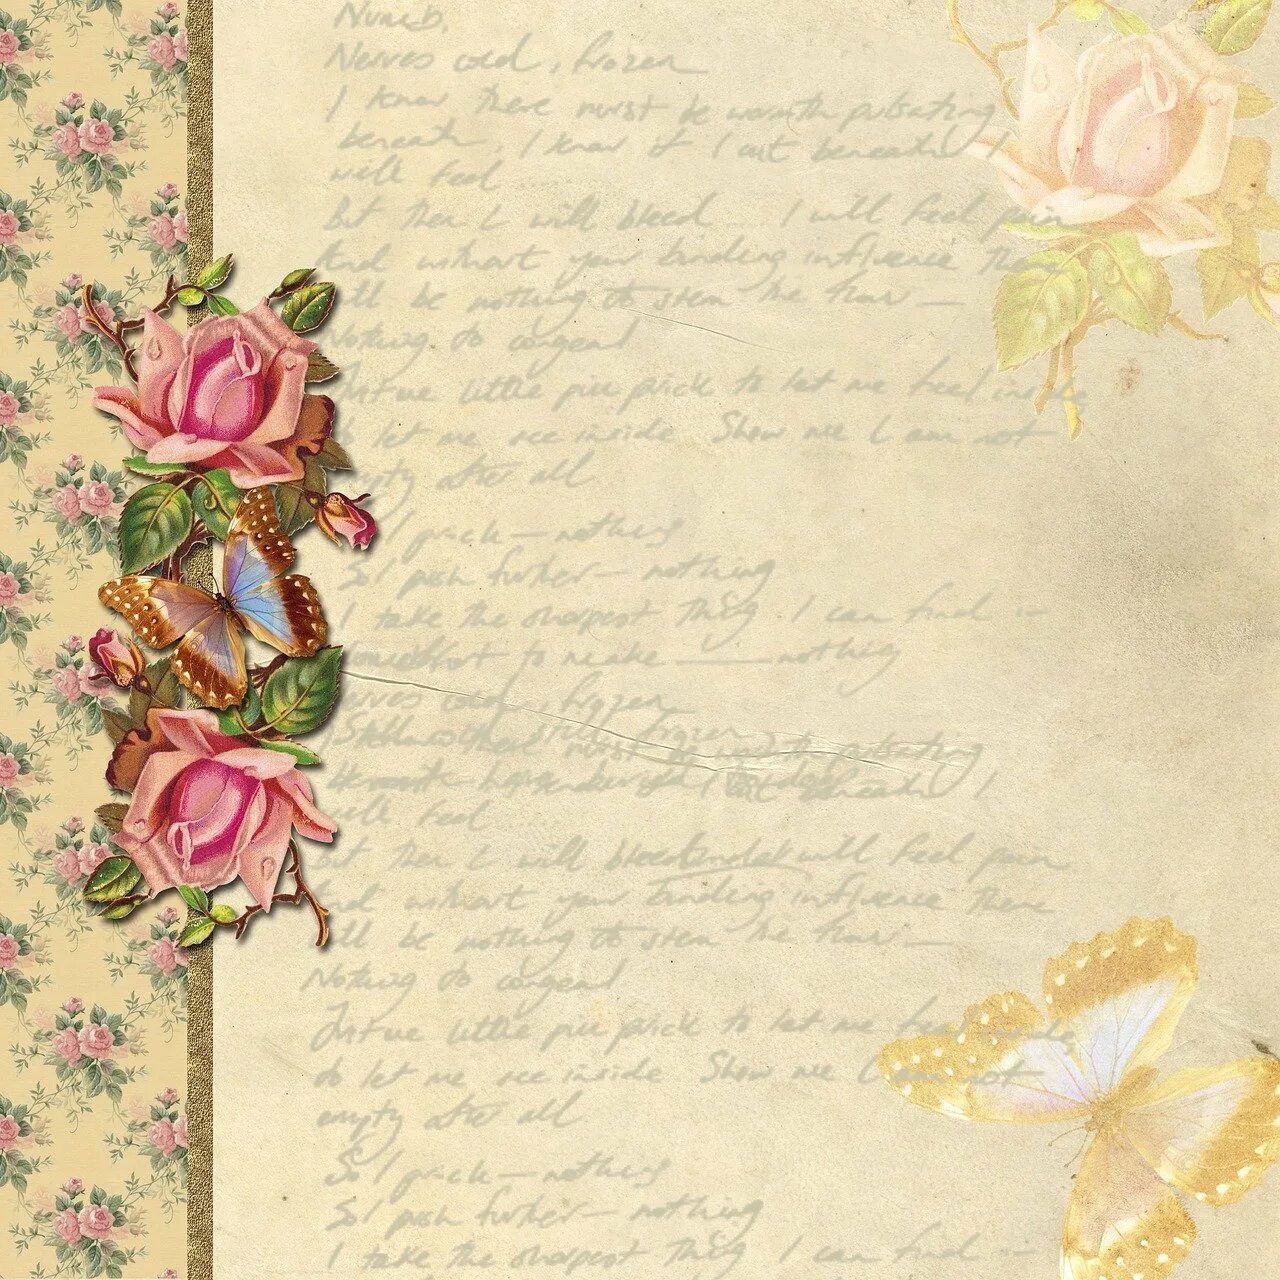 Numb.
Nerves cold, frozen
I know there must be warmth pulsating
beneath. I know if I cut beneath I
will feel
But then I will bleed. I will feel pain
And without your binding influence there
will be nothing to stem the flow —
Nothing to congeal
Just one little pin prick to let me feel inside
to let me see inside Show me I am not
empty after all
So I prick — nothing
So I push further — nothing
I take the sharpest thing I can find —
to make — nothing
Nerves cold, frozen
pulsating
I
will feel
But then I will will feel pain
And without your binding influence there
will be nothing to stem the flow —
Nothing to congeal
Just one little pin prick to let me feel inside
to let me see inside Show me I am not
empty after all
So I prick — nothing
So I push further — nothing
I take the sharpest thing I can find —